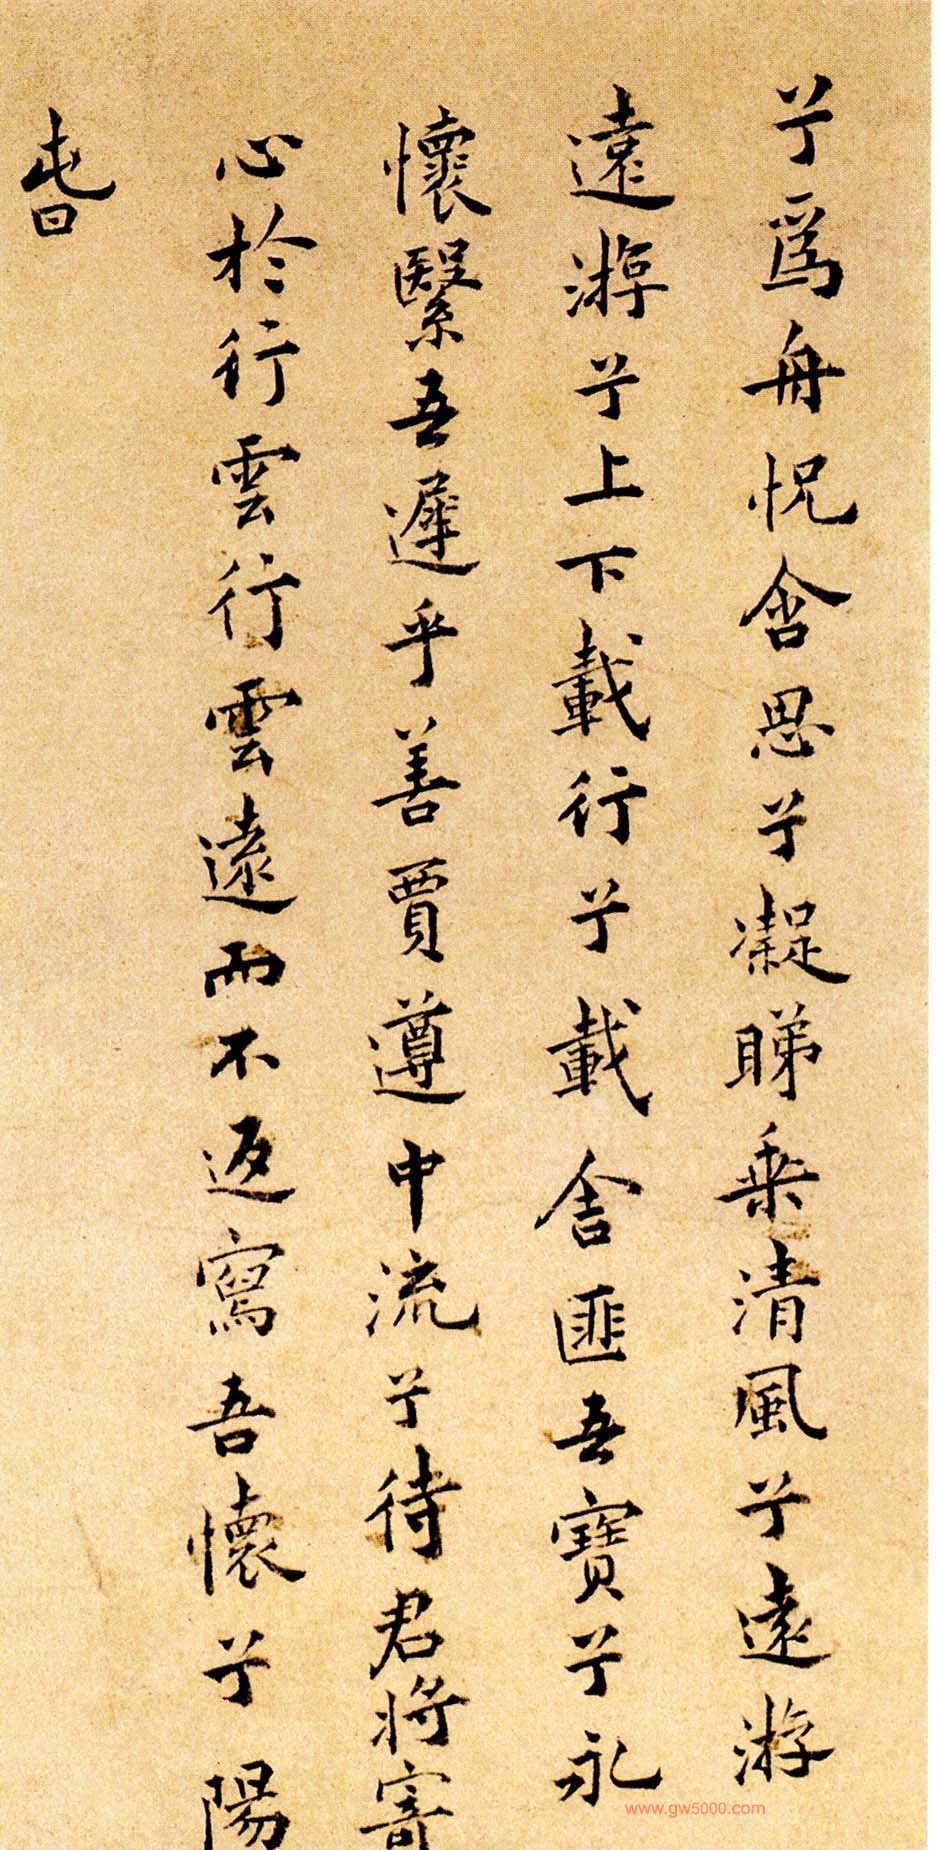 兮爲舟怳含思兮凝睇乘清風兮遠游
遠游兮上下載行兮載舍匪吾寶兮永
懷繄吾遲乎善賈遵中流兮待君將寄
心於行雲行雲遠而不返寫吾懷兮陽
www.gw5000.com